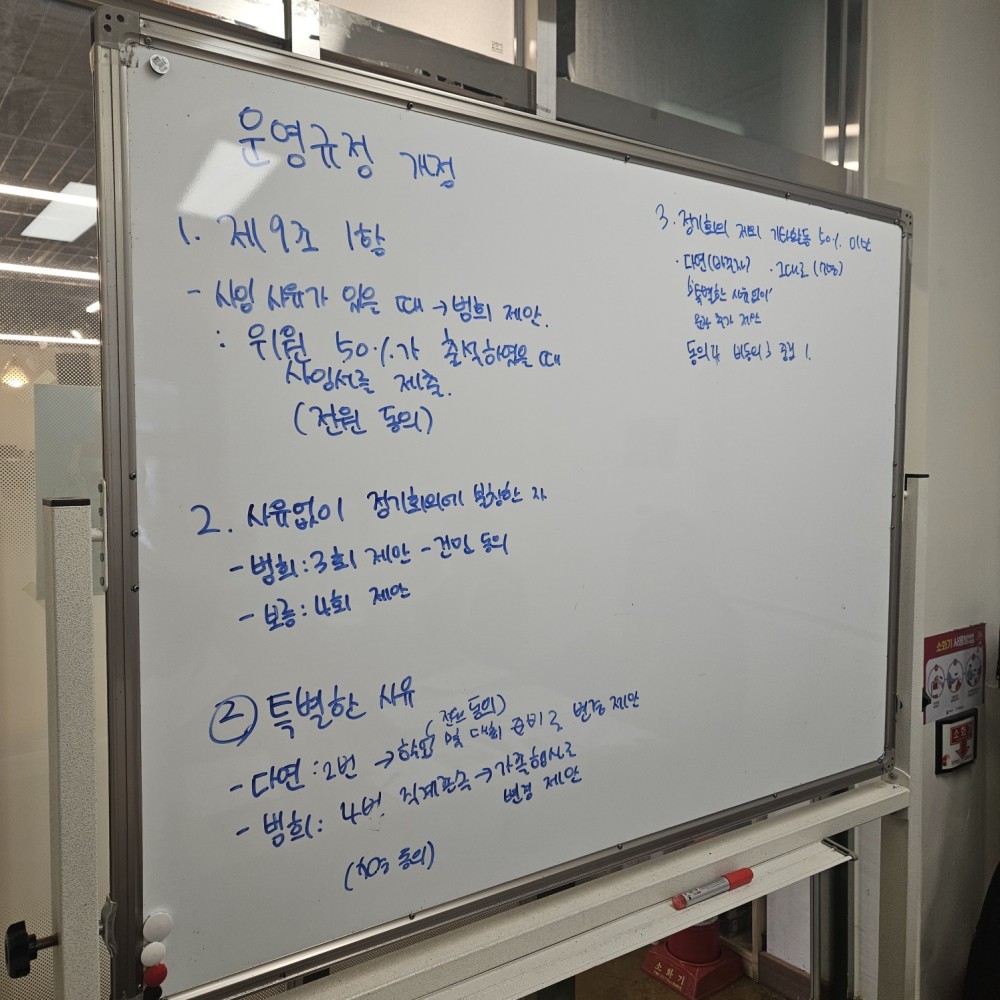 운영규정 개정
1. 제9조 1항
- 사임 사유가 있을 때 → 범희 제안.
: 위원 50%가 출석하였을 때
사임서를 제출.
(전원 동의)
2. 사유없이 정기회의에 불참한 자
- 범희 : 3회 제안 - 건민 동의
- 보승 : 4회 제안
② 특별한 사유
(전원 동의)
- 다연 : 2번 → 학교 및 대회 준비로 변경 제안
- 범희 : 4번 직계존속 → 가족행사로
변경 제안
동의)
3. 정기회의 제외 기타활동 50% 미만
· 다연 · 그대로 (7명)
'특별한 사유없이'
문구 추가 제안
동의 4 비동의 3 중립 1.
소화기 사용방법
소화
소화기